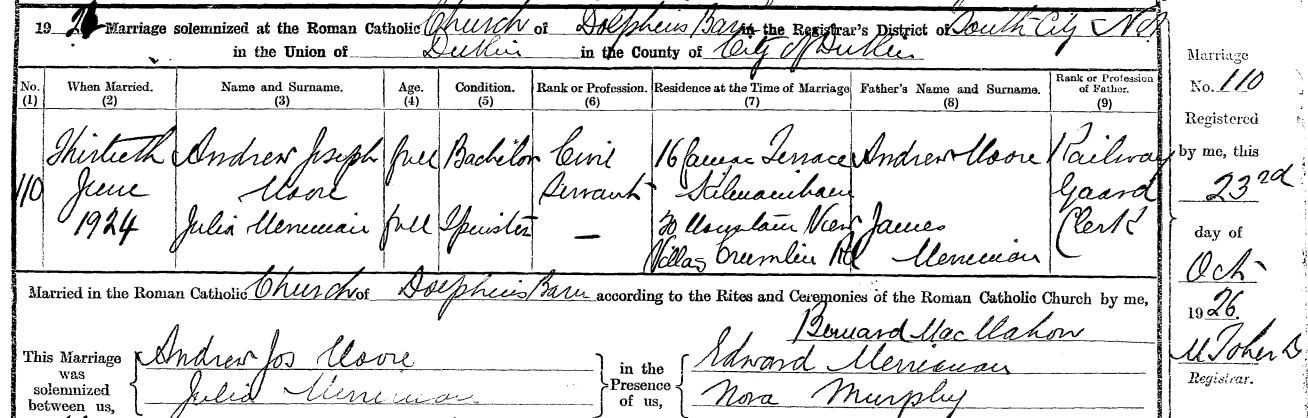 19 26 Marriage solemnized at the Roman Catholic Church of Dolphins Barn in the Registrar's District of South City No
in the Union of Dublin in the County of City of Dublin
No. (1) When Married. (2) Name and Surname. (3) Age. (4) Condition. (5) Rank or Profession. (6) Residence at the Time of Marriage (7) Father's Name and Surname. (8) Rank or Profession of Father. (9)
Thirtieth Andrew Joseph full Bachelor Civil 16 Camac Terrace Andrew Moore Railway
110 June Moore Servant Kilmainham Guard
1924 Julia Merriman full Spinster — 30 Mountain View James Clerk
Villas Crumlin Rd Merriman
Married in the Roman Catholic Church of Dolphins Barn according to the Rites and Ceremonies of the Roman Catholic Church by me,
Bernard MacMahon
This Marriage was solemnized between us,
Andrew Jos Moore
Julia Merriman
in the Presence of us,
Edward Merriman
Nora Murphy
Marriage
No. 110
Registered
by me, this
23rd
day of
Oct
1926.
Registrar.